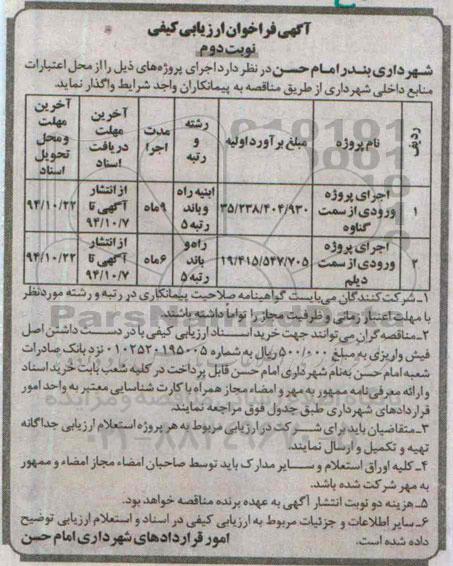 آگهی فراخوان ارزیابی کیفی
نوبت دوم
شهرداری بندر امام حسن در نظر دارد اجرای پروژه‌های ذیل را از محل اعتبارات
منابع داخلی شهرداری از طریق مناقصه به پیمانکاران واجد شرایط واگذار نماید.
ردیف | نام پروژه | مبلغ برآورد اولیه | رشته و رتبه | مدت اجرا | آخرین مهلت دریافت اسناد | آخرین مهلت و محل تحویل اسناد
۱ | اجرای پروژه ورودی از سمت گناوه | ۳۵/۲۳۸/۴۰۴/۹۳۰ | ابنیه راه و باند رتبه ۵ | ۹ ماه | از انتشار آگهی تا ۹۴/۱۰/۷ | ۹۴/۱۰/۲۲
۲ | اجرای پروژه ورودی از سمت دیلم | ۱۹/۴۱۵/۵۴۷/۷۰۵ | راه و باند رتبه ۵ | ۶ ماه | از انتشار آگهی تا ۹۴/۱۰/۷ | ۹۴/۱۰/۲۲
۱ـ شرکت کنندگان می‌بایست گواهینامه صلاحیت پیمانکاری در رتبه و رشته موردنظر
با مهلت اعتبار زمانی و ظرفیت مجاز را تواماً داشته باشند.
۲ـ مناقصه گران می‌توانند جهت خرید اسناد ارزیابی کیفی با در دست داشتن اصل
فیش واریزی به مبلغ ۵۰۰/۰۰۰ ریال به شماره ۰۱۰۲۵۲۰۱۹۵۰۰۵ نزد بانک صادرات
شعبه امام حسن به‌نام شهرداری امام حسن قابل پرداخت در کلیه شعب بابت خرید اسناد
و ارائه معرفی‌نامه ممهور به مهر و امضاء مجاز همراه با کارت شناسایی معتبر به واحد امور
قراردادهای شهرداری طبق جدول فوق مراجعه نمایند.
۳ـ متقاضیان باید برای شرکت در ارزیابی مربوط به هر پروژه استعلام ارزیابی جداگانه
تهیه و تکمیل و ارسال نمایند.
۴ـ کلیه اوراق استعلام و سایر مدارک باید توسط صاحبان امضاء مجاز امضاء و ممهور
به مهر شرکت شده باشد.
۵ـ هزینه دو نوبت انتشار آگهی به عهده برنده مناقصه خواهد بود.
۶ـ سایر اطلاعات و جزئیات مربوط به ارزیابی کیفی در اسناد و استعلام ارزیابی توضیح
داده شده است.
امور قراردادهای شهرداری امام حسن